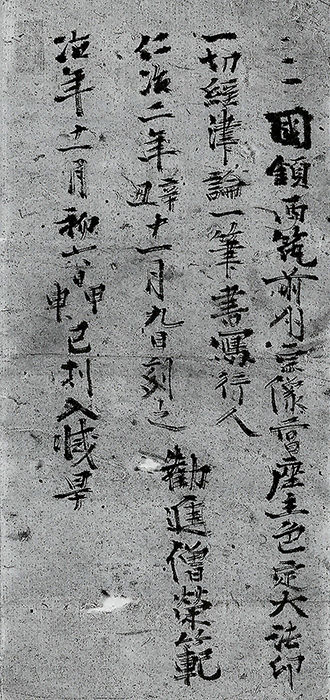 三國領西筑前州宗像宮座主色定大法印
一切經律論一筆書寫行人
仁治二年辛丑十一月九日刻之
勸進僧榮範
治年十一月初六日甲申巳刻入滅畢